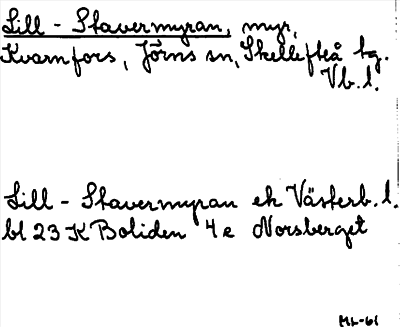 Lill - Stavermyran, myr,
Kvarnfors, Jörns sn, Skellefteå tg.
Vb. l.
Lill - Stavermyran ek Västerb. l.
bl 23 K Boliden 4 e Norsberget
ML-61